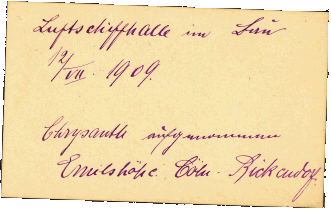 Luftschiffhalle im Bau
12/VII. 1909.
Chrysanth aufgenommen
Emilshöhe Cöln-Bickendorf.